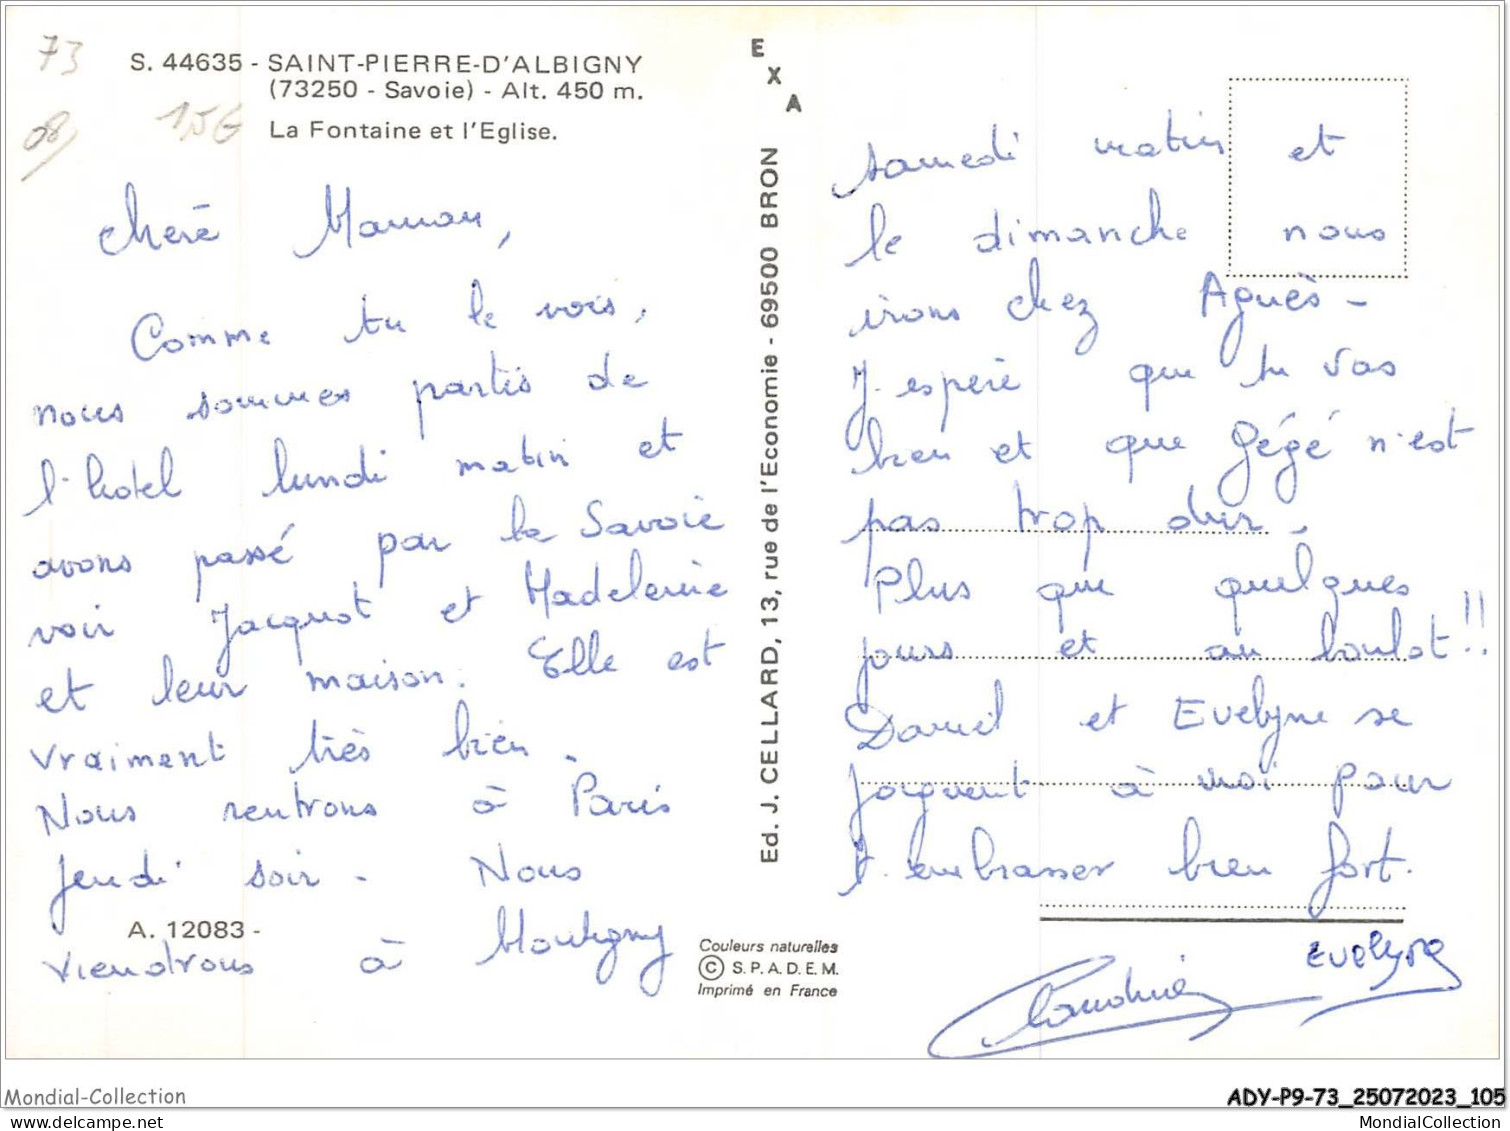 73
S. 44635 - SAINT-PIERRE-D'ALBIGNY
(73250 - Savoie) - Alt. 450 m.
08/ 1,5€
La Fontaine et l'Eglise.
Chère Maman,
Comme tu le vois,
nous sommes partis de
l'hotel lundi matin et
avons passé par la Savoie
voir Jacquot et Madeleine
et leur maison. Elle est
vraiment très bien.
Nous rentrons à Paris
Jeudi soir - Nous
A. 12083 -
viendrons à Montigny
EXA
Ed. J. CELLARD, 13, rue de l'Economie - 69500 BRON
Couleurs naturelles
© S.P.A.D.E.M.
Imprimé en France
samedi matin et
le dimanche nous
irons chez Agnès -
J'espère que tu vas
bien et que Gégé n'est
pas trop dur.
Plus que quelques
jours et au boulot!!
Daniel et Evelyne se
joignent à moi pour
t'embrasser bien fort.
Evelyne
Mondial-Collection
ADY-P9-73_25072023_105
MondialCollection